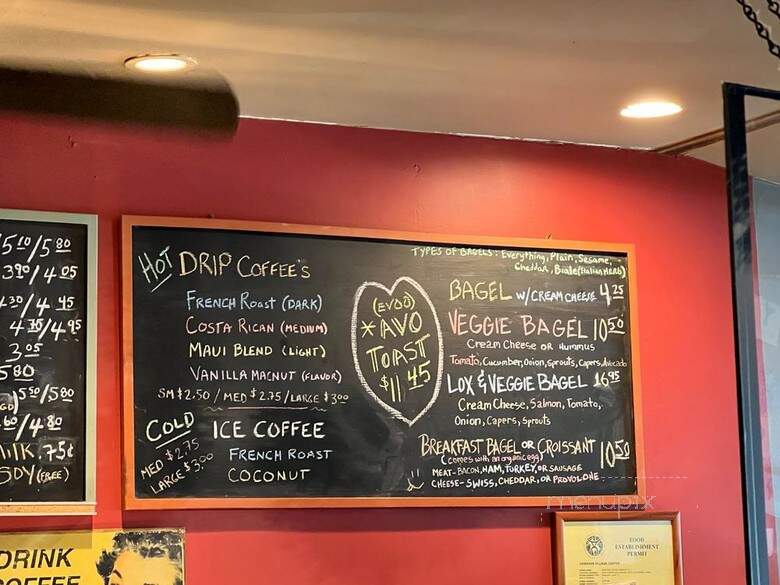 5 10/5 80
3 90/4 05
4 30/4 45
4 35/4 95
3 05
5 80
5 50/5 80
60/4 80
MILK .75¢
SOY (FREE)
HOT DRIP COFFEE'S
FRENCH ROAST (DARK)
COSTA RICAN (MEDIUM)
MAUI BLEND (LIGHT)
VANILLA MACNUT (FLAVOR)
SM $2.50 / MED $2.75/LARGE $3.00
COLD ICE COFFEE
MED $2.75
LARGE $3.00
FRENCH ROAST
COCONUT
(EVOO)
*AVO
TOAST
$11 45
TYPES OF BAGELS: Everything, Plain, Sesame,
Cheddar, Biale (Italian Herb)
BAGEL W/CREAM CHEESE 4.25
VEGGIE BAGEL 10 50
Cream Cheese OR Hummus
Tomato, Cucumber, Onion, Sprouts, Capers, Avocado
LOX & VEGGIE BAGEL 16 95
Cream Cheese, Salmon, Tomato,
Onion, Capers, Sprouts
BREAKFAST BAGEL OR CROISSANT 10 50
(comes with an organic egg)
MEAT-BACON, HAM, TURKEY, OR SAUSAGE
CHEESE-SWISS, CHEDDAR, OR PROVOLONE
menupix
DRINK
COFFEE
FOOD
ESTABLISHMENT
PERMIT